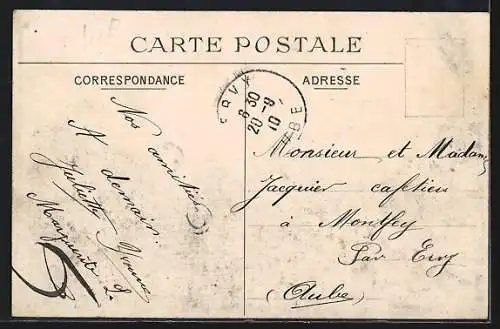 CARTE POSTALE
CORRESPONDANCE
ADRESSE
Nos amitiés
A demain.
Juliette Yvonne
Marguerite L
ERVY
8 30
20 - 9
10
AUBE
Monsieur et Madame
Jacquier cafetier
à Montfey
Par Ervy
(Aube)